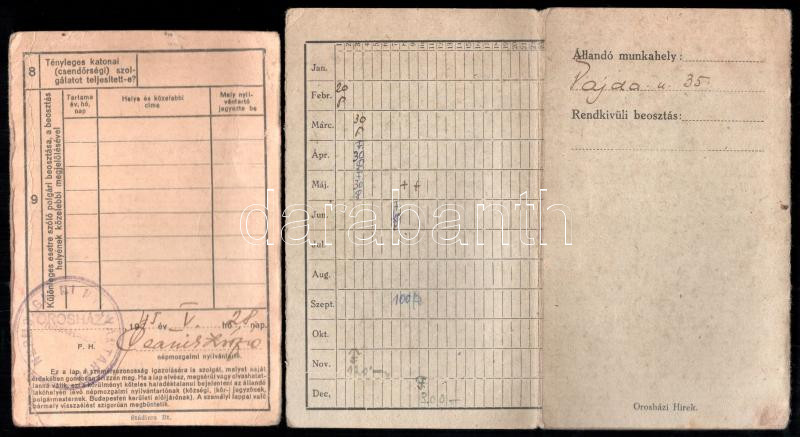 8
Tényleges katonai
(csendőrségi) szol-
gálatot teljesített-e?
9
Különleges esetre szóló polgári beosztása, a beosztás
helyének közelebbi megjelölésével
Tartama
év, hó,
nap
Helye és közelebbi
címe
Mely nyil-
vántartó
jegyezte be
OROSHÁZA
1945 év V. hó 28 nap.
P. H.
népmozgalmi nyilvántartó.
Ez a lap a személyazonosság igazolására is szolgál, melyet saját
érdekében gondosan őrizzen meg. Ha a lap elvész, megsérül vagy olvashatat-
lanná válik, ezt a körülményt köteles haladéktalanul bejelenteni az állandó
lakóhelyén lévő népmozgalmi nyilvántartónak (községi, (kör-) jegyzőnek,
polgármesternek. Budapesten kerületi elöljárónak). A személyi lappal való
bármely visszaélést szigorúan megbüntetik.
Stádium Rt.
1 2 3 4 5 6 7 8 9 10 11 12 13 14 15 16 17 18 19 20 21
Jan.
Febr. 20
Márc. 30
Ápr.
Máj. + +
Jun.
Jul.
Aug.
Szept. 100
Okt.
Nov. 120-
Dec. 300-
Állandó munkahely:
Vajda u. 35.
Rendkivüli beosztás:
Orosházi Hirek.
darabanth